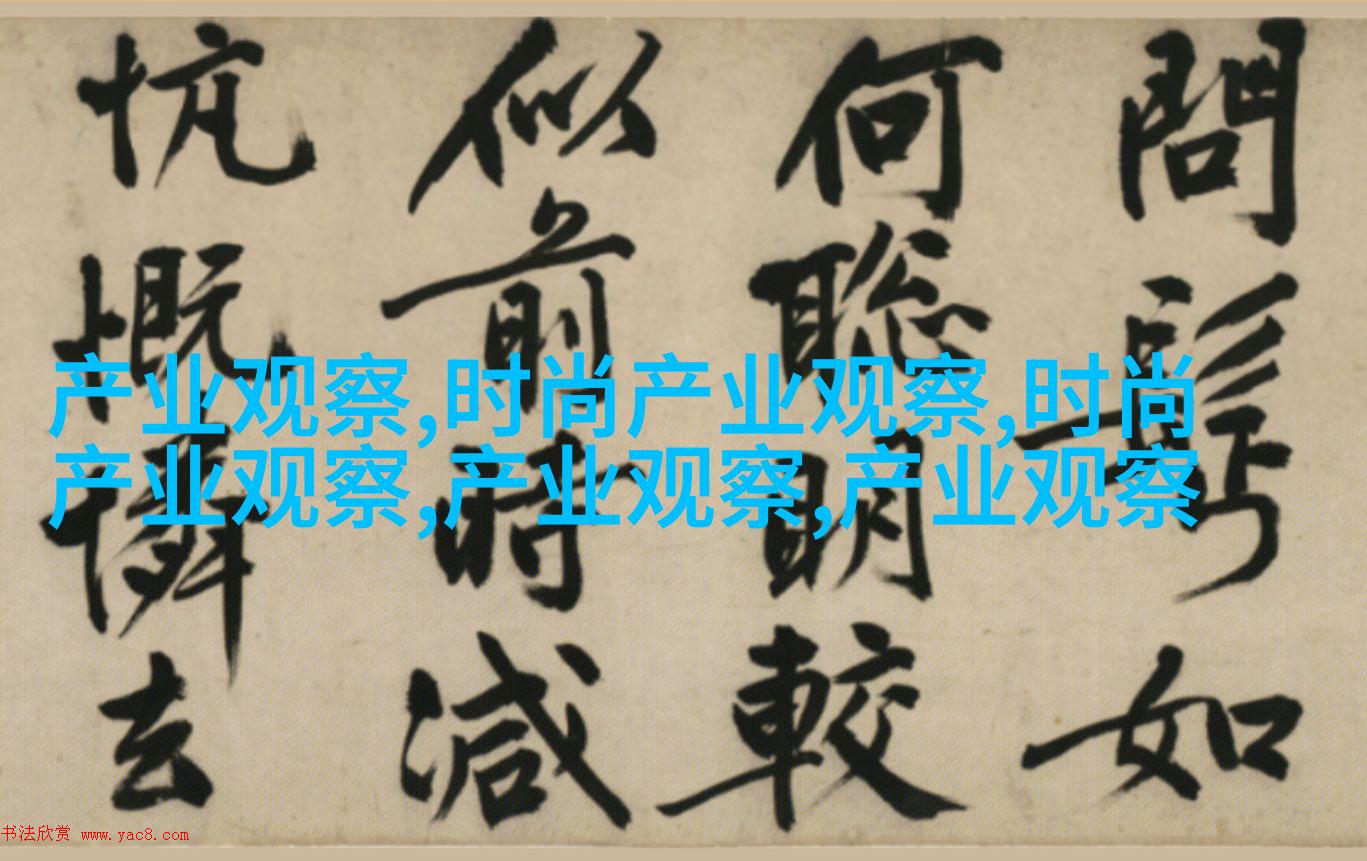 問如
何聰明較
似前時減
忼慨憐去
产业观察,时尚产业观察,时尚
产业观察,产业观察,产业观察
书法欣赏 www.yac8.com